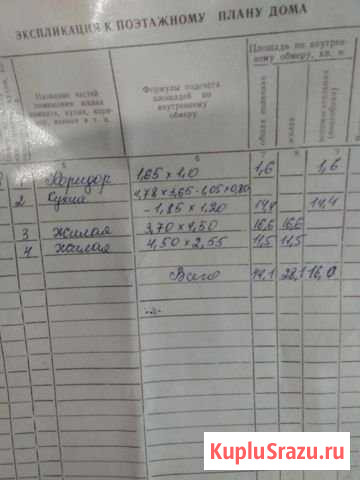 ЭКСПЛИКАЦИЯ К ПОЭТАЖНОМУ ПЛАНУ ДОМА
Название частей помещения
Формулы подсчета площадей по внутреннему обмеру
Площадь по внутреннему обмеру, кв. м
общая полезная
жилая
1 Коридор 1,65 × 1,0 1,6 1,6
2 Кухня 4,78 × 3,65 - 1,05 × 0,80
- 1,85 × 1,20 14,4 14,4
3 Жилая 3,70 × 4,50 16,6 16,6
4 жилая 4,50 × 2,55 11,5 11,5
Всего 28,1 16,0
KupluSrazu.ru